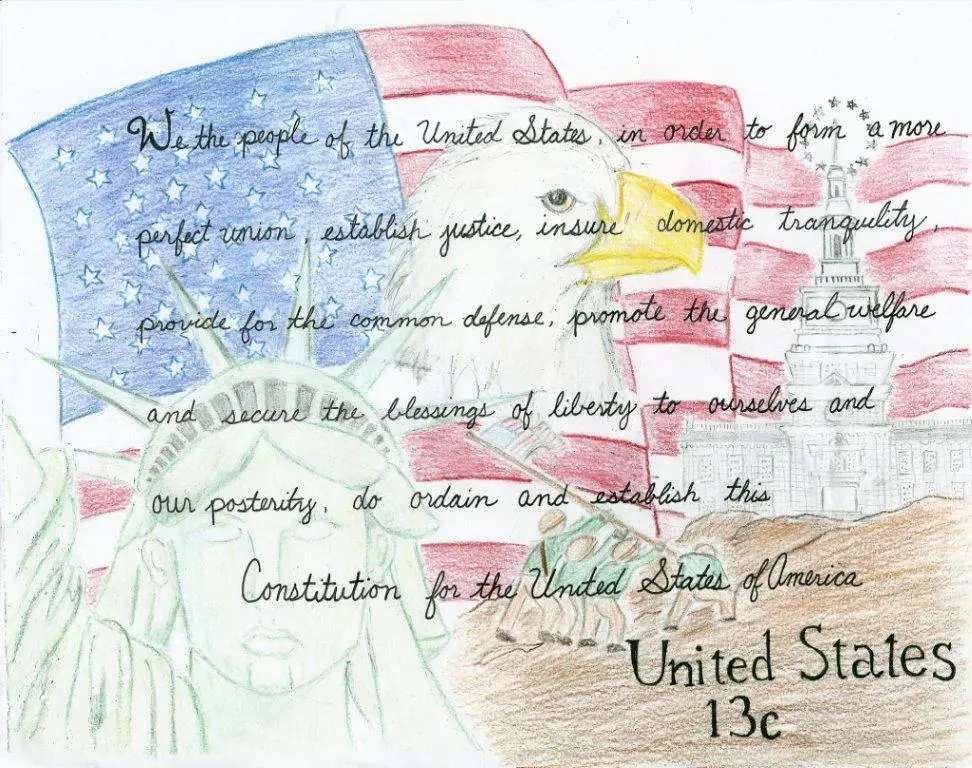 We the people of the United States, in order to form a more
perfect union, establish justice, insure domestic tranquility,
provide for the common defense, promote the general welfare
and secure the blessings of liberty to ourselves and
our posterity, do ordain and establish this
Constitution for the United States of America
United States
13c